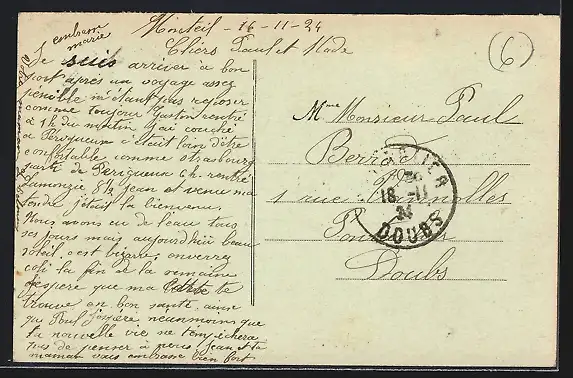 Monteil - 16-11-24
Chers Paul et Made
embrasse
marie
Je suis arriver à bon
port après un voyage assez
pénible m'étant pas reposer
comme toujour Gaston rentré
à 1h du matin j'ai couché
a Perigueux c'était loin d'être
confortable comme strasbourg
parti de Perigueux 6h. rentré
Lamonzie 8½ Jean et venu ma
tendre j'était la bienvenu.
Nous avons eu de l'eau tous
ses jours mais aujourd'hui beau
soleil, c'est bizarre, enverrez
coli la fin de la semaine
j'espère que ma carte te
trouve en bon santé, ainsi
que Paul j'espère neanmoins que
ta nouvelle vie ne t'empêchera
pas de penser à nous Jean et ta
maman vous embrasse bien fort
6
Mme Monsieur Paul
1 aux
Doubs
18 -11
24
DOUBS